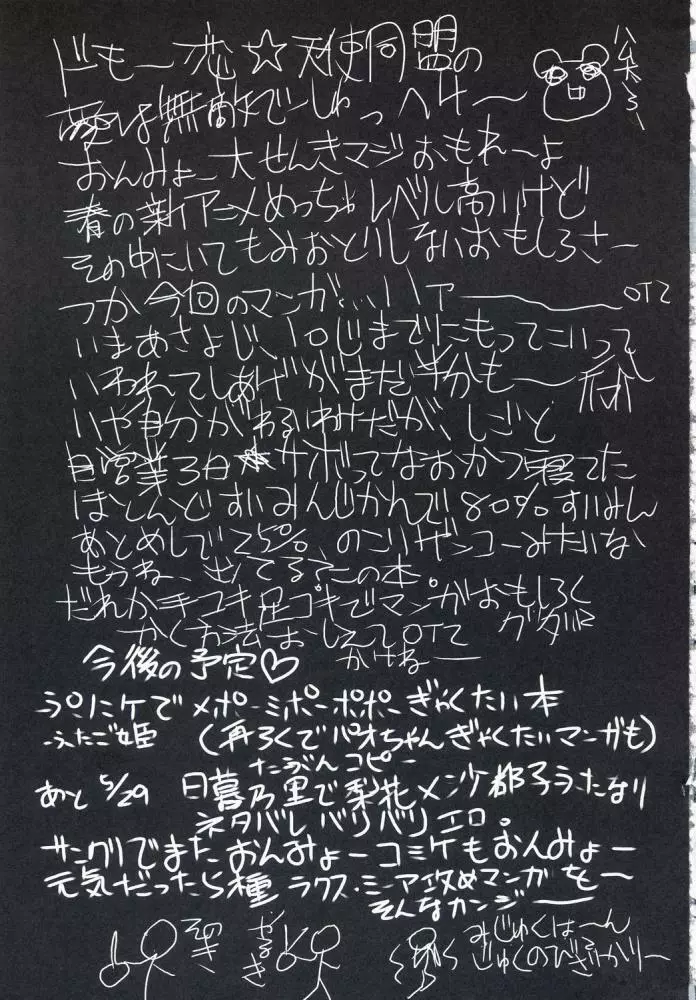 ドもー恋☆天使同盟の
愛は無敵でーしゅっ
おんみょー大せんきマジおもれーよ
春の新アニメめっちゃレベル高いけど
その中にいてもみおとりしないおもしろさー
つか今回のマンガ…ハァー OTZ
いまあさ 10じまでにもってこいって
いわれてしあげがまだ半分も――
いや自分がわるいわけだが、しごと
自営業3日 サボってなおかつ寝てた
ほとんどすいみんじかんで80%すいみん
あとめしで25% のこりザンコーみたいな
もうね、出てる?この本。
だれか手コキ足コキでマンガおもしろく
かく方法おしえてOTZ
かけねー
今後の予定♡
ぷにケでメポーミポーポポーぎゃくたい本
ふたご姫 (再ろくでパオちゃんぎゃくたいマンガも)
たぶんコピー
あと5/29 日暮乃里で梨花メンツケ都子ふたなり
ネタバレバリバリエロ。
サンクリでまたおんみょーコミケもおんみょー
元気だったら種 ラクス・ミーア攻めマンガをー
そんなカンジー
そのき
やるき
みじゅくはーん
じゅくのびざかりー